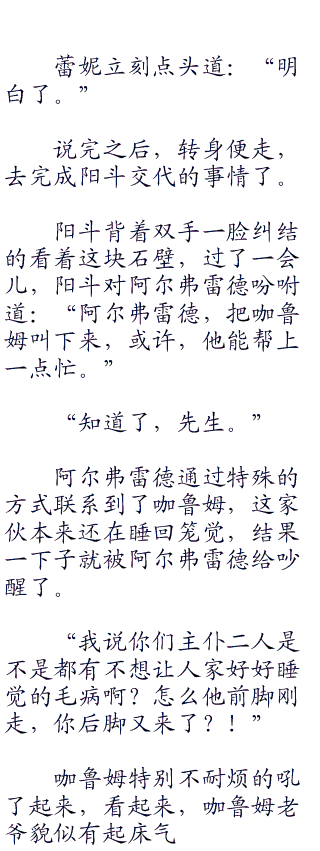 蕾妮立刻点头道：“明
白了。”
说完之后，转身便走，
去完成阳斗交代的事情了。
阳斗背着双手一脸纠结
的看着这块石壁，过了一会
儿，阳斗对阿尔弗雷德吩咐
道：“阿尔弗雷德，把咖鲁
姆叫下来，或许，他能帮上
一点忙。”
“知道了，先生。”
阿尔弗雷德通过特殊的
方式联系到了咖鲁姆，这家
伙本来还在睡回笼觉，结果
一下子就被阿尔弗雷德给吵
醒了。
“我说你们主仆二人是
不是都有不想让人家好好睡
觉的毛病啊？怎么他前脚刚
走，你后脚又来了？！”
咖鲁姆特别不耐烦的吼
了起来，看起来，咖鲁姆老
爷貌似有起床气